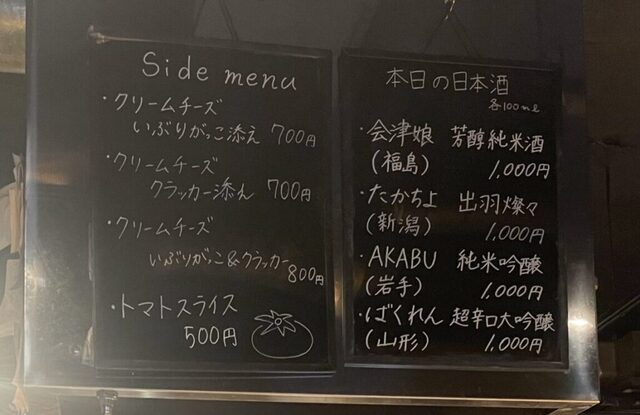 Side menu
・クリームチーズ
いぶりがっこ添え 700円
・クリームチーズ
クラッカー添え 700円
・クリームチーズ
いぶりがっこ&クラッカー
800円
・トマトスライス
500円
本日の日本酒
各100ml
・会津娘 芳醇純米酒
(福島) 1,000円
・たかちよ 出羽燦々
(新潟) 1,000円
・AKABU 純米吟醸
(岩手) 1,000円
・ばくれん 超辛口大吟醸
(山形) 1,000円